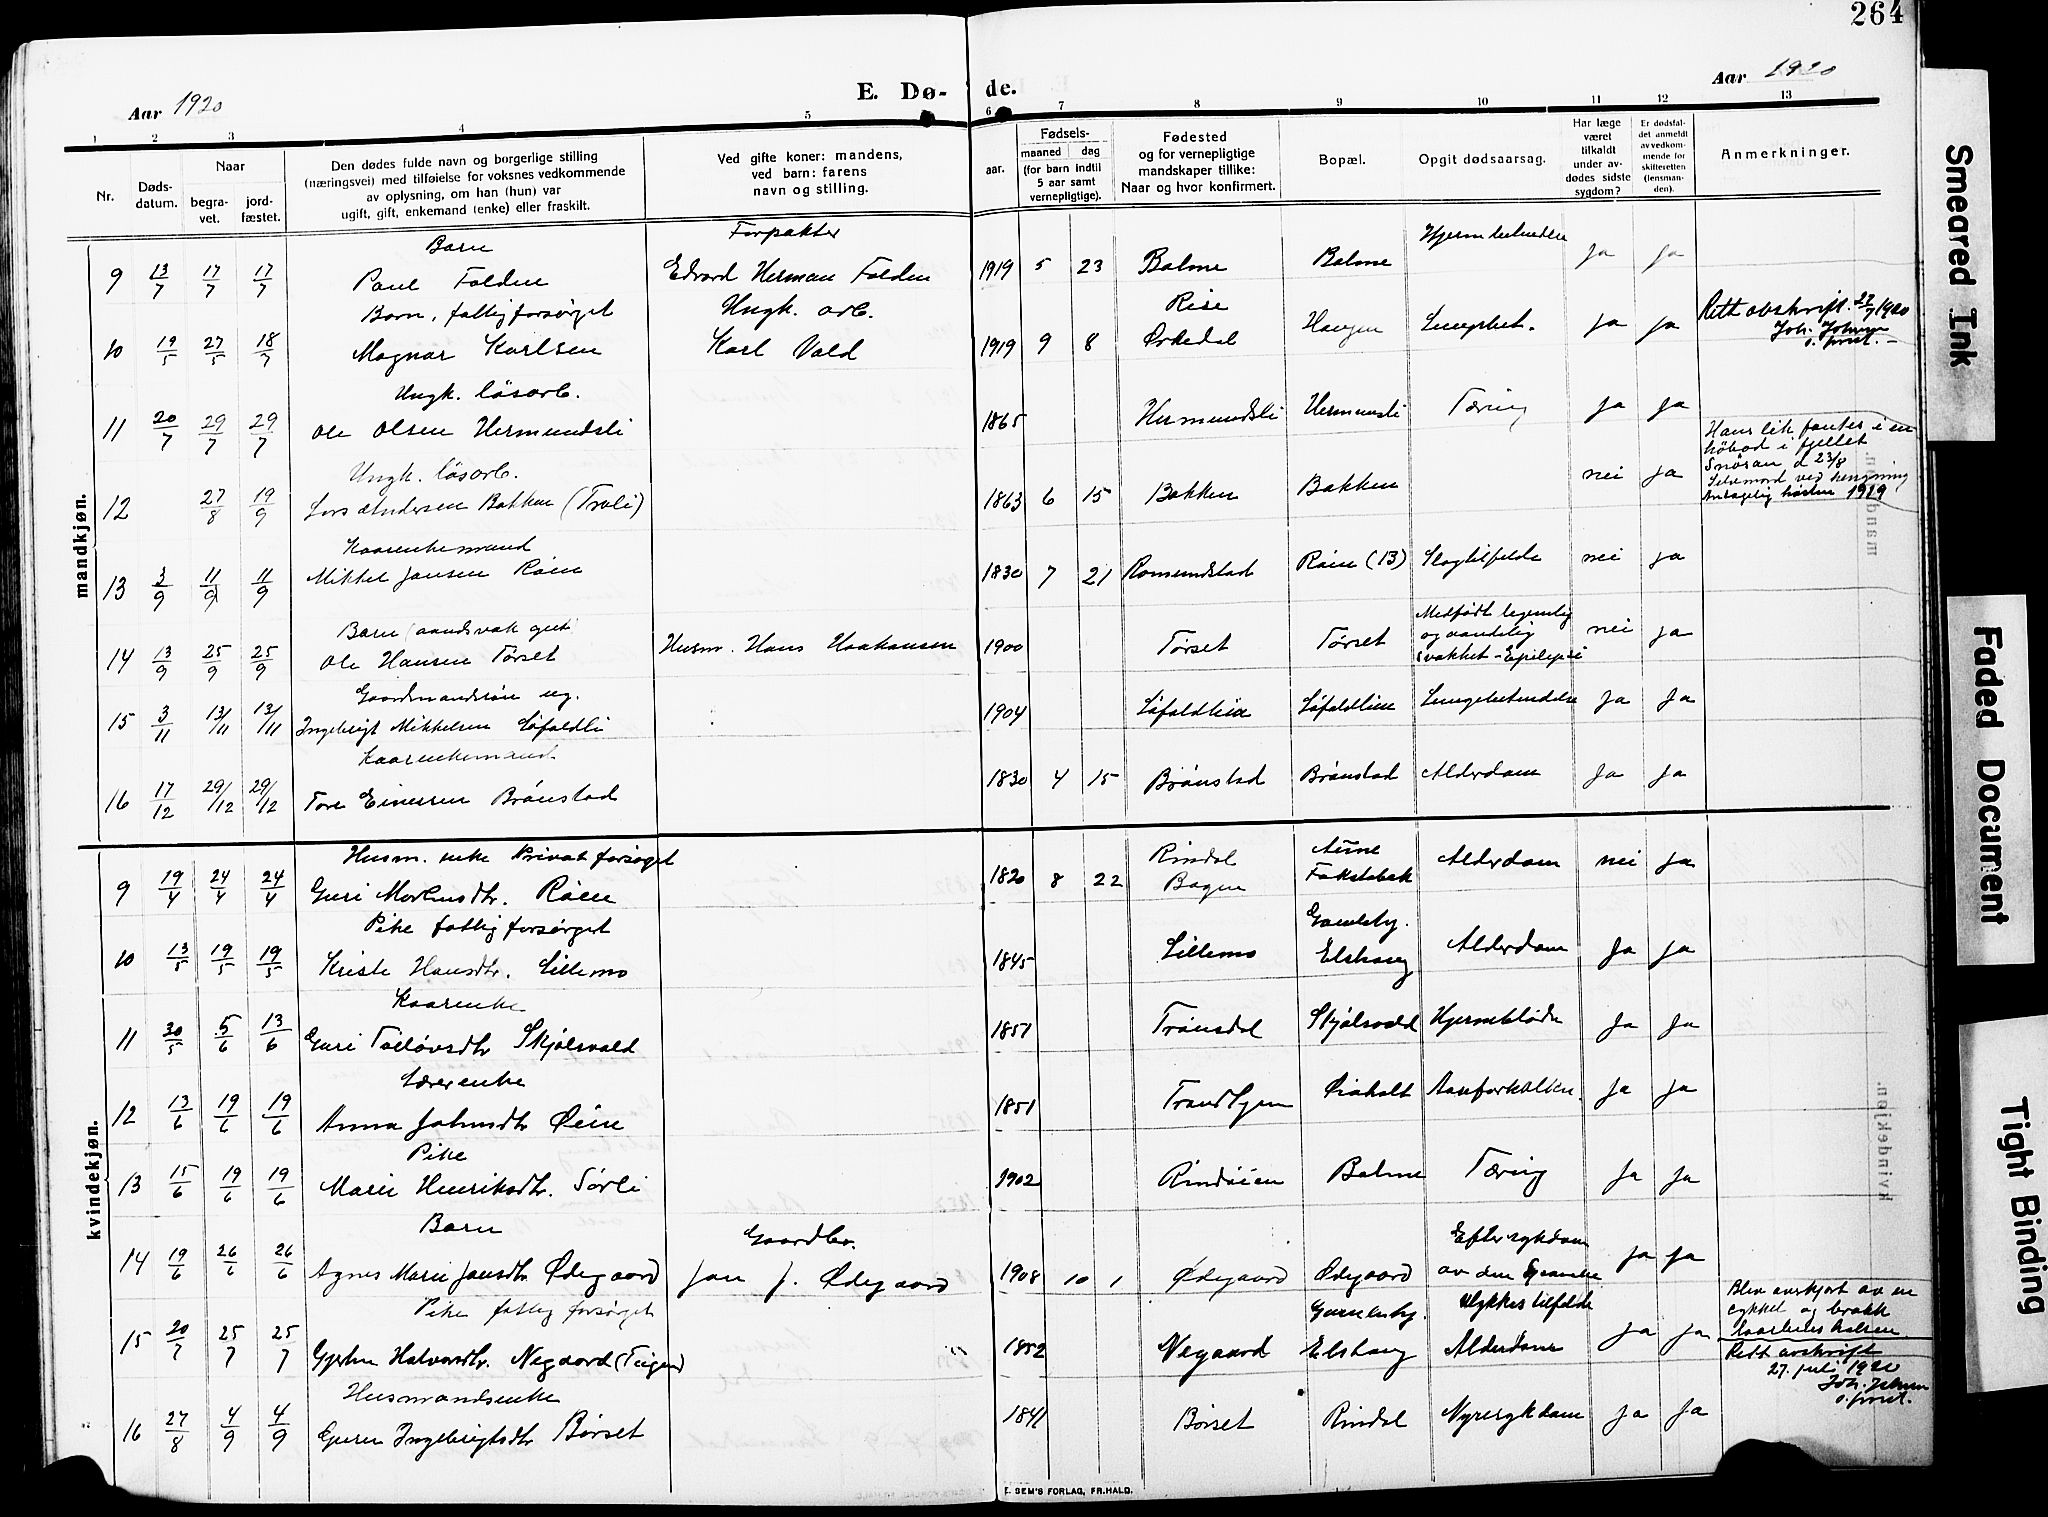 264
Aar 1920
E. Dø-
de.
Aar 1920
1 2 3 4 5 6 7 8 9 10 11 12 13
Nr.
Døds-
datum.
Naar
begra-
vet.
jord-
fæstet.
Den dødes fulde navn og borgerlige stilling
(næringsvei) med tilføielse for voksnes vedkommende
av oplysning, om han (hun) var
ugift, gift, enkemand (enke) eller fraskilt.
Ved gifte koner: mandens,
ved barn: farens
navn og stilling.
aar.
Fødsels-
maaned dag
(for barn indtil
5 aar samt
vernepligtige).
Fødested
og for vernepligtige
mandskaper tillike:
Naar og hvor konfirmert.
Bopæl.
Opgit dødsaarsag.
Har læge
været
tilkaldt
under av-
dødes sidste
sygdom?
Er dødsfal-
det anmeldt
av vedkom-
mende for
skifteretten
(lensman-
den).
Anmerkninger.
mandkjøn.
Barn Forpakter Hjernebetændelse
9 13/7 17/7 17/7 Paul Folden Edvard Herman Folden 1919 5 23 Bolme Bolme ja ja
Barn, fattigforsørget Ungk. arb. Rise
10 19/5 27/5 18/7 Magnar Karlsen Karl Vold 1919 9 8 Orkedal Haugen ja ja
Rett avskrift. 22/7 1920
Joh. Johnsen
s. prest.
Ungk. løsarb.
11 20/7 29/7 29/7 Ole Olsen Hermundsli 1865 Hermundsli Hermundsli Tæring ja ja
Ungk. løsarb.
12 27/8 19/9 Lars Andersen Bakken (Troli) 1863 6 15 Bakken Bakken nei ja
Hans lik fantes i en
høbod i fjellet
Snøsan d 23/8
Selvmord ved hengning
Antagelig høsten 1919
Kaarenkemand
13 3/9 11/9 11/9 Mikkel Jansen Røen 1830 7 21 Romundstad Røen (13) Slagtilfelde nei ja
Barn (aandsvak gut)
14 13/9 25/9 25/9 Ole Hansen Tørset Husm. Hans Haakansen 1900 Tørset Tørset nei ja
Medfødt legemlig
og aandelig
svakhet - Epilepsi
Gaardmandssøn ug.
15 3/11 13/11 13/11 Ingebrigt Mikkelsen Løfaldli 1904 Løfaldlien Løfaldlien Lungebetændelse ja ja
Kaarenkemand
16 17/12 29/12 29/12 Tore Einersen Brønstad 1830 4 15 Brønstad Brønstad Alderdom ja ja
kvindekjøn.
Husm. enke Privat forsøget Rindal Aune
9 19/4 24/4 24/4 Guri Røen 1820 8 22 Bagen Alderdom nei ja
Pike fattig forsørget Gamleby.
10 13/5 19/5 19/5 Kristi Hansdtr. Lillemo 1845 Lillemo Elshaug Alderdom ja ja
Kaarenke
11 30/5 5/6 13/6 Guri Skjølsvold 1851 Trønsdal Skjølsvold ja ja
Lærerenke
12 13/6 19/6 19/6 Anna Johnsdtr Øien 1851 Aareforkalken. ja ja
Pike
13 15/6 19/6 19/6 Marie Henriksdtr. Sørli 1902 Rindøien Bolme Tæring ja ja
Barn Gaardbr. Efter sykdom
14 19/6 26/6 26/6 Agnes Marie Jansdtr Ødegaard Jon J. Ødegaard 1908 10 1 Ødegaard Ødegaard av den Spanske ja ja
Pike fattig forsørget Ulykkestilfelde
15 20/7 25/7 25/7 Halvorsdtr. Negaard (Teigen) 1852 Negaard Elshaug Alderdom ja ja
Blev overkjørt av en
cykkel og brækk
laarbenes halsen.
Rett avskrift
27. juli 1920
Joh. Johnsen
s. prest.
Husmandsenke
16 27/8 4/9 4/9 Guru Ingebrigtsdtr Børset 1841 Børset Rindal Nyresykdom ja ja
SEM'S FORLAG, FR.HALD.
Smeared Ink
Faded Document
Tight Binding